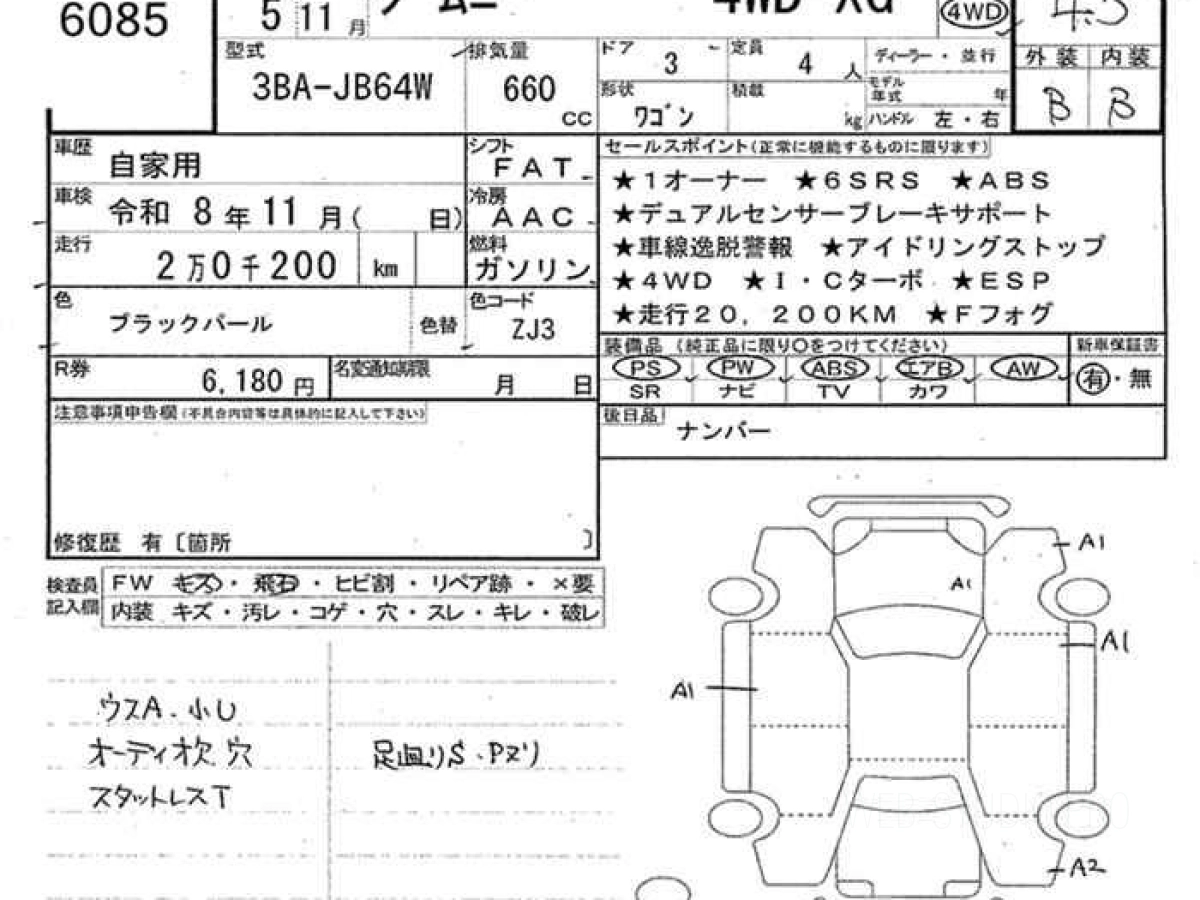 6085
5 11 月
4WD
4WD
4.5
型式
3BA-JB64W
排気量
660
CC
ドア
3
定員
4 人
ディーラー・並行
形状
ワゴン
積載
kg
モデル年式
年
ハンドル 左・右
外装 内装
B B
車歴
自家用
シフト
FAT
車検
令和 8年 11月( 日)
冷房
AAC
走行
2万0千200 km
燃料
ガソリン
色
ブラックパール
色替
色コード
ZJ3
R券
6,180円
名変通知期限
月 日
注意事項申告欄(不具合内容等は具体的に記入して下さい)
修復歴 有〔箇所 〕
セールスポイント(正常に機能するものに限ります)
★1オーナー ★6SRS ★ABS
★デュアルセンサーブレーキサポート
★車線逸脱警報 ★アイドリングストップ
★4WD ★I・Cターボ ★ESP
★走行20,200KM ★Fフォグ
装備品(純正品に限り○をつけてください)
新車保証書
PS PW ABS エアB AW
有・無
SR ナビ TV カワ
後日品
ナンバー
検査員記入欄
FW キズ・飛石・ヒビ割・リペア跡・×要
内装 キズ・汚レ・コゲ・穴・スレ・キレ・破レ
ウスA.小U
オーディオ欠 穴
スタットレスT
足廻りS.Pヌリ
A1
A1
A1
A1
A2